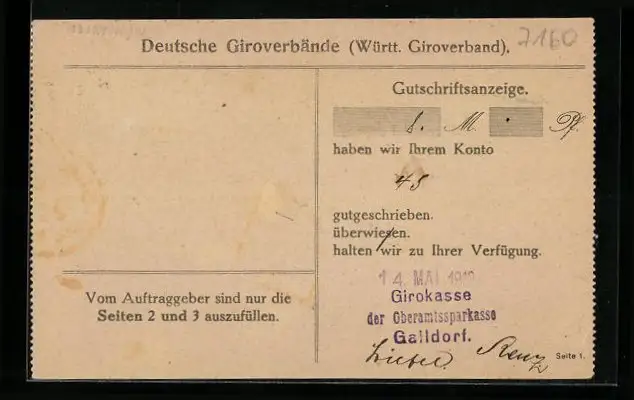 7160
Deutsche Giroverbände (Württ. Giroverband).
Gutschriftsanzeige.
8. M. Pf.
haben wir Ihrem Konto
45
gutgeschrieben.
überwiesen.
halten wir zu Ihrer Verfügung.
Vom Auftraggeber sind nur die
Seiten 2 und 3 auszufüllen.
14. MAI 191
Girokasse
der Oberamtssparkasse
Gaildorf.
Renz
Seite 1.